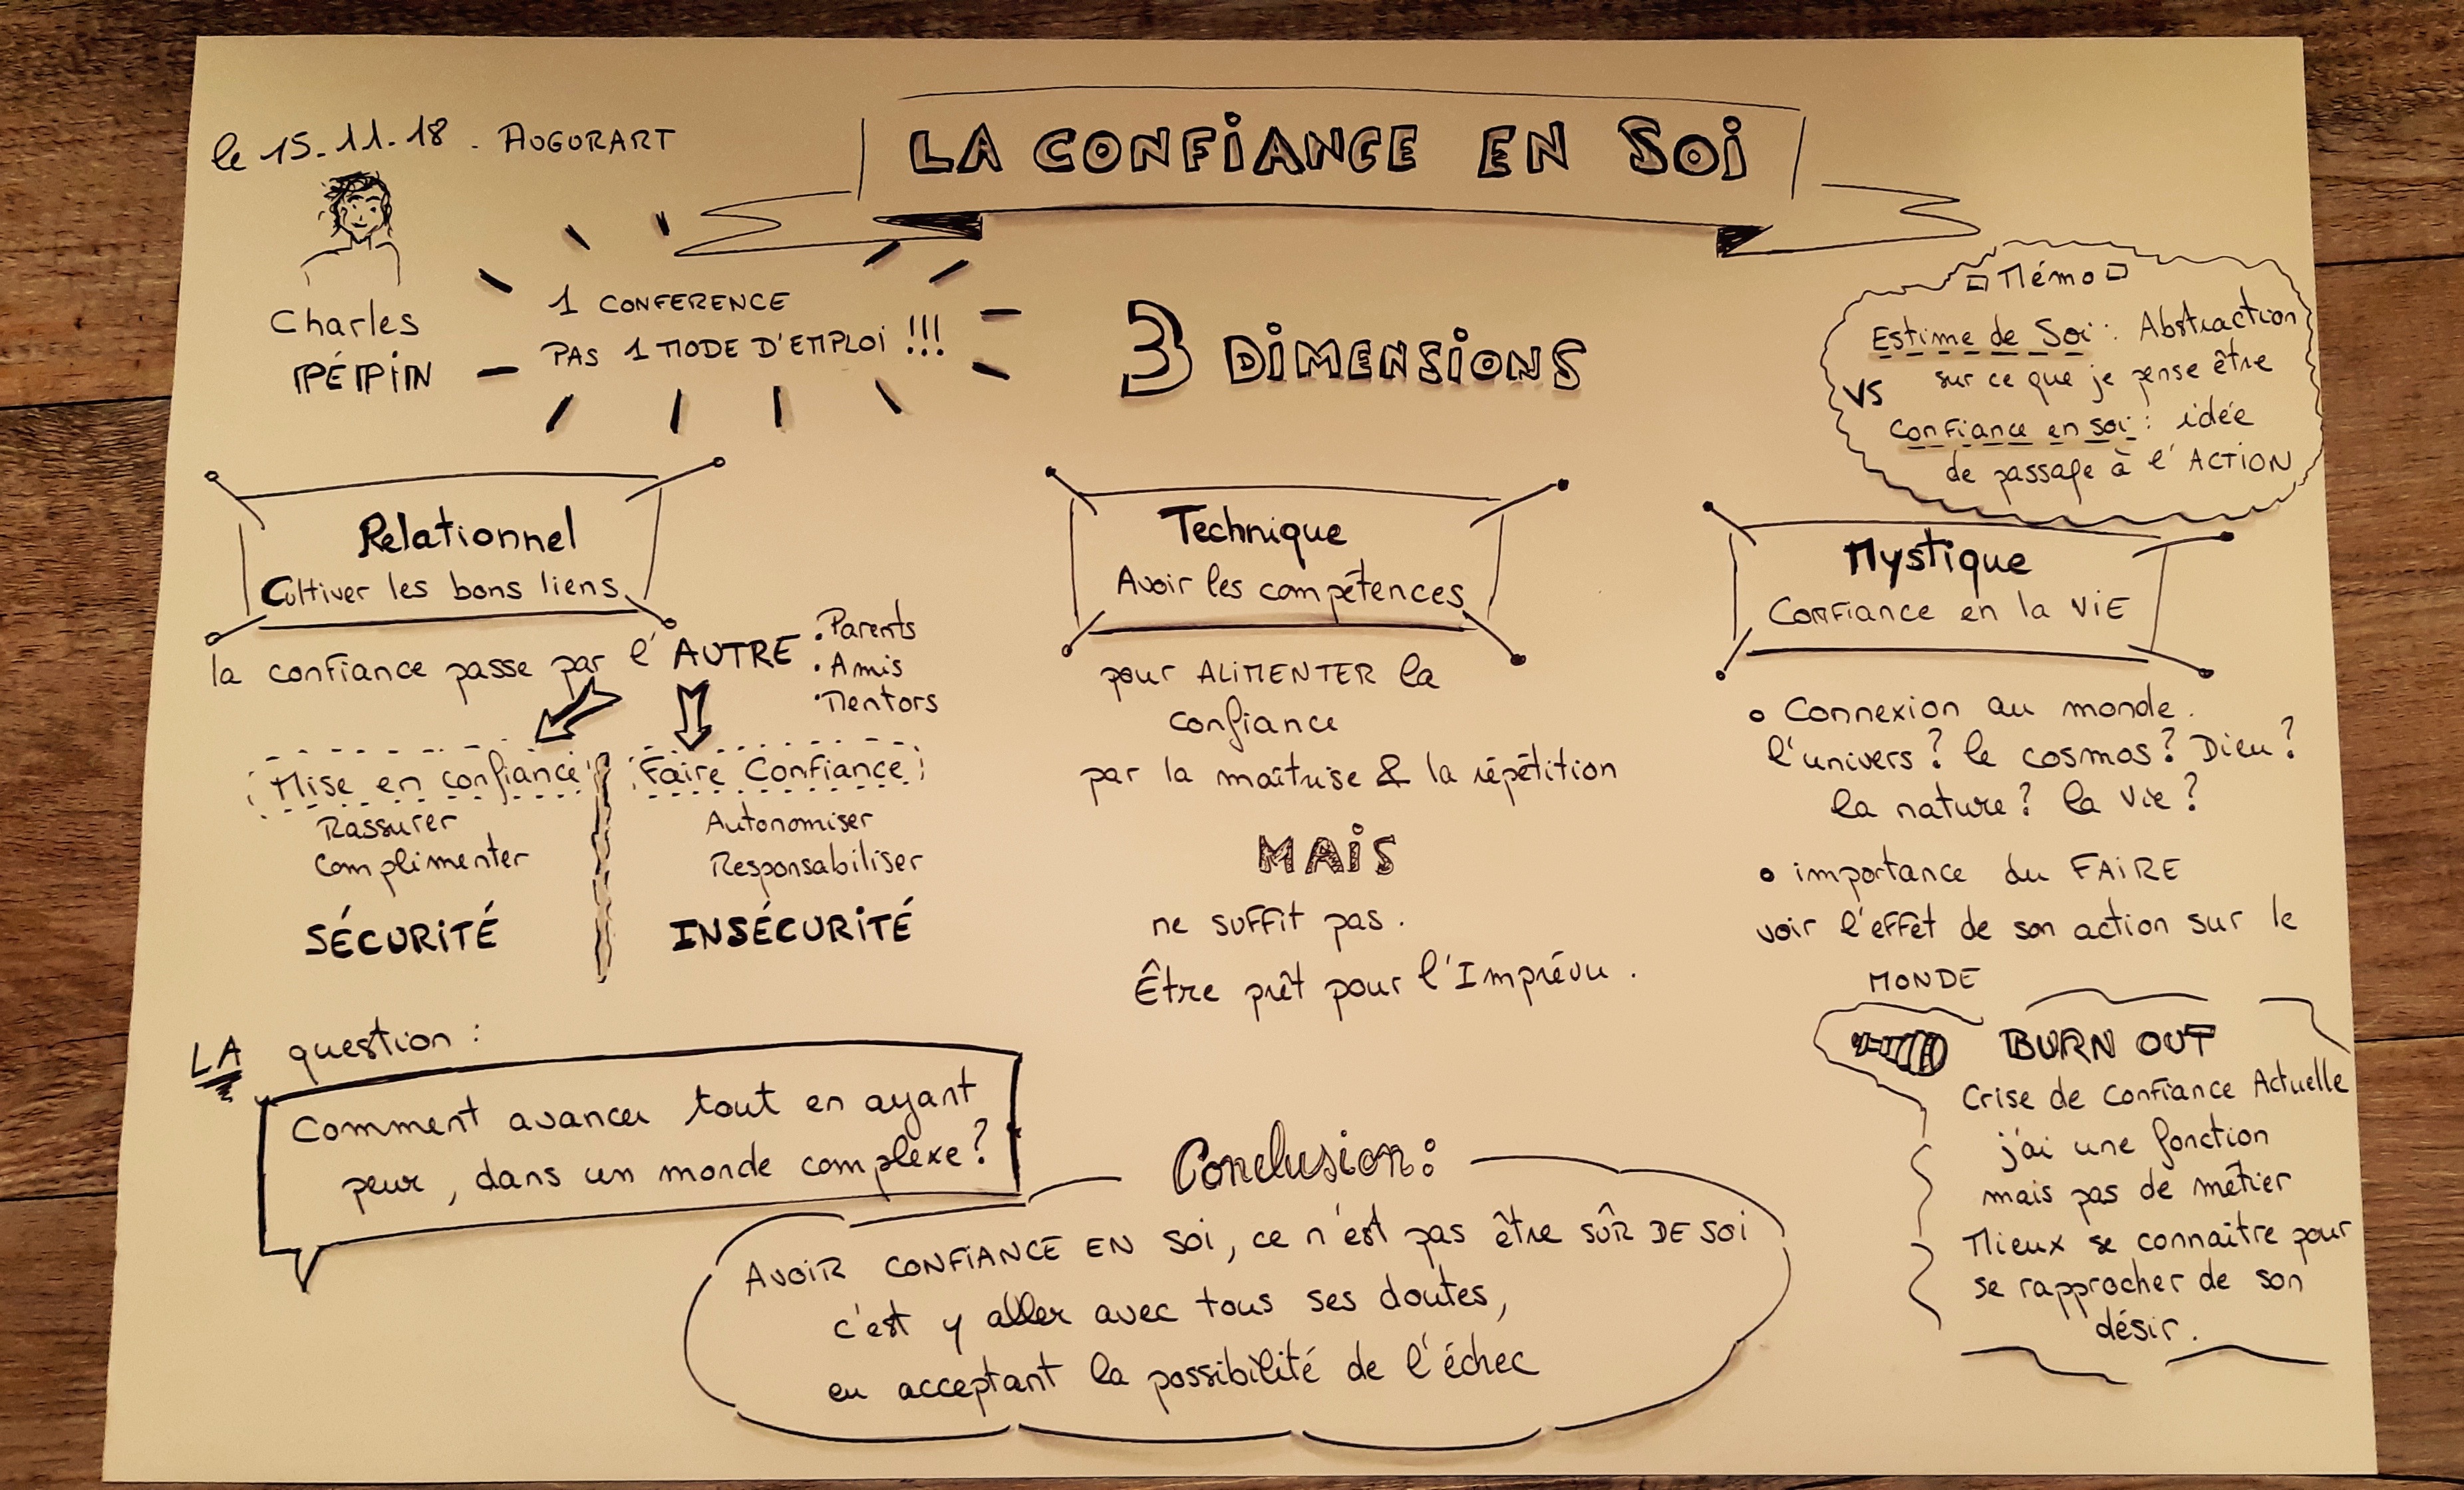 le 15.11.18 - AUGURART
LA CONFIANCE EN SOI
Charles
PÉPIN
1 CONFERENCE
PAS 1 MODE D'EMPLOI !!!
3 DIMENSIONS
Mémo
Estime de Soi : Abstraction
sur ce que je pense être
VS
Confiance en soi : idée
de passage à l'ACTION
Relationnel
Cultiver les bons liens
la confiance passe par l'AUTRE
• Parents
• Amis
• Mentors
Mise en confiance
Rassurer
Complimenter
SÉCURITÉ
Faire Confiance
Autonomiser
Responsabiliser
INSÉCURITÉ
Technique
Avoir les compétences
pour ALIMENTER la
confiance
par la maîtrise & la répétition
MAIS
ne suffit pas.
Être prêt pour l'Imprévu.
Mystique
Confiance en la VIE
• Connexion au monde.
l'univers ? le cosmos ? Dieu ?
la nature ? la vie ?
• importance du FAIRE
voir l'effet de son action sur le
MONDE
LA question :
Comment avancer tout en ayant
peur, dans un monde complexe ?
BURN OUT
Crise de Confiance Actuelle
j'ai une fonction
mais pas de métier
Mieux se connaître pour
se rapprocher de son
désir.
Conclusion :
AVOIR CONFIANCE EN SOI, ce n'est pas être SÛR DE SOI
c'est y aller avec tous ses doutes,
en acceptant la possibilité de l'échec